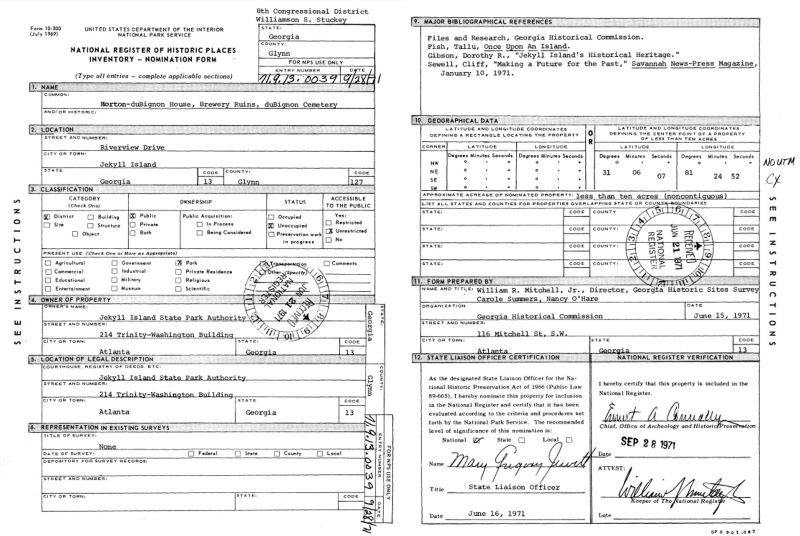 8th Congressional District
Williamson S. Stuckey
Form 10-300
(July 1969)
UNITED STATES DEPARTMENT OF THE INTERIOR
NATIONAL PARK SERVICE
NATIONAL REGISTER OF HISTORIC PLACES
INVENTORY - NOMINATION FORM
(Type all entries - complete applicable sections)
STATE:
Georgia
COUNTY:
Glynn
FOR NPS USE ONLY
ENTRY NUMBER DATE
71.9.13.0039 9/28/71
1. NAME
COMMON:
Horton-duBignon House, Brewery Ruins, duBignon Cemetery
AND/OR HISTORIC:
2. LOCATION
STREET AND NUMBER:
Riverview Drive
CITY OR TOWN:
Jekyll Island
STATE CODE COUNTY: CODE
Georgia 13 Glynn 127
3. CLASSIFICATION
CATEGORY
(Check One)
OWNERSHIP
STATUS
ACCESSIBLE
TO THE PUBLIC
District Building
Site Structure
Object
Public
Private
Both
Public Acquisition:
In Process
Being Considered
Occupied
Unoccupied
Preservation work
in progress
Yes:
Restricted
Unrestricted
No
PRESENT USE (Check One or More as Appropriate)
Agricultural Government Park Transportation Comments
Commercial Industrial Private Residence Other (Specify)
Educational Military Religious
Entertainment Museum Scientific
RECEIVED
JUN 21 1971
NATIONAL
REGISTER
4. OWNER OF PROPERTY
OWNER'S NAME:
Jekyll Island State Park Authority
STREET AND NUMBER:
214 Trinity-Washington Building
CITY OR TOWN: STATE: CODE
Atlanta Georgia 13
STATE:
Georgia
5. LOCATION OF LEGAL DESCRIPTION
COURTHOUSE, REGISTRY OF DEEDS, ETC:
Jekyll Island State Park Authority
STREET AND NUMBER:
214 Trinity-Washington Building
CITY OR TOWN: STATE CODE
Atlanta Georgia 13
COUNTY:
Glynn
6. REPRESENTATION IN EXISTING SURVEYS
TITLE OF SURVEY:
None
DATE OF SURVEY: Federal State County Local
DEPOSITORY FOR SURVEY RECORDS:
STREET AND NUMBER:
CITY OR TOWN: STATE: CODE
ENTRY NUMBER
71.9.13.0039
DATE
9/28/71
FOR NPS USE ONLY
SEE INSTRUCTIONS
9. MAJOR BIBLIOGRAPHICAL REFERENCES
Files and Research, Georgia Historical Commission.
Fish, Tallu, Once Upon An Island.
Gibson, Dorothy R., "Jekyll Island's Historical Heritage."
Sewell, Cliff, "Making a Future for the Past," Savannah News-Press Magazine,
January 10, 1971.
10. GEOGRAPHICAL DATA
LATITUDE AND LONGITUDE COORDINATES
DEFINING A RECTANGLE LOCATING THE PROPERTY
OR
LATITUDE AND LONGITUDE COORDINATES
DEFINING THE CENTER POINT OF A PROPERTY
OF LESS THAN TEN ACRES
CORNER LATITUDE LONGITUDE LATITUDE LONGITUDE
Degrees Minutes Seconds Degrees Minutes Seconds Degrees Minutes Seconds Degrees Minutes Seconds
NW
NE
SE
SW
31 06 07 81 24 52
NO UTM
CX
APPROXIMATE ACREAGE OF NOMINATED PROPERTY: less than ten acres (noncontiguous)
LIST ALL STATES AND COUNTIES FOR PROPERTIES OVERLAPPING STATE OR COUNTY BOUNDARIES
STATE: CODE COUNTY CODE
STATE: CODE COUNTY: CODE
STATE: CODE COUNTY: CODE
STATE: CODE COUNTY: CODE
RECEIVED
JUN 21 1971
NATIONAL
REGISTER
11. FORM PREPARED BY
NAME AND TITLE: William R. Mitchell, Jr., Director, Georgia Historic Sites Survey
Carole Summers, Nancy O'Hare
ORGANIZATION DATE
Georgia Historical Commission June 15, 1971
STREET AND NUMBER:
116 Mitchell St, S.W.
CITY OR TOWN: STATE CODE
Atlanta Georgia 13
12. STATE LIAISON OFFICER CERTIFICATION
As the designated State Liaison Officer for the Na-
tional Historic Preservation Act of 1966 (Public Law
89-665), I hereby nominate this property for inclusion
in the National Register and certify that it has been
evaluated according to the criteria and procedures set
forth by the National Park Service. The recommended
level of significance of this nomination is:
National State Local
Name Mary Gregory Jewett
Title State Liaison Officer
Date June 16, 1971
NATIONAL REGISTER VERIFICATION
I hereby certify that this property is included in the
National Register.
Ernest A Connally
Chief, Office of Archeology and Historic Preservation
SEP 28 1971
Date
ATTEST:
Keeper of The National Register
Date
SEE INSTRUCTIONS
GPO 901.087